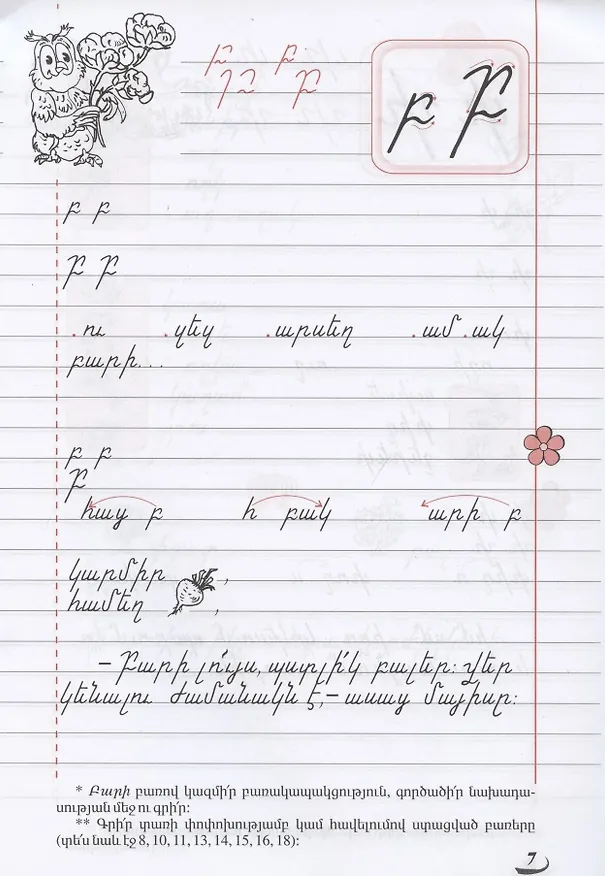 բ Բ
բ բ
Բ Բ
.ու .զեզ .արսեղ .ամ.ակ
բարի...
բ բ
Բ
հաց բ հ բակ արի բ
կարմիր ,
համեղ ,
– Բարի լո՛ւյս, պստլի՛կ բալեր: Վեր
կենալու ժամանակն է,– ասաց մայիսը:
* Բարի բառով կազմի՛ր բառակապակցություն, գործածի՛ր նախադա-
սության մեջ ու գրի՛ր:
** Գրի՛ր տառի փոփոխությամբ կամ հավելումով ստացված բառերը
(տե՛ս նաև էջ 8, 10, 11, 13, 14, 15, 16, 18):
7